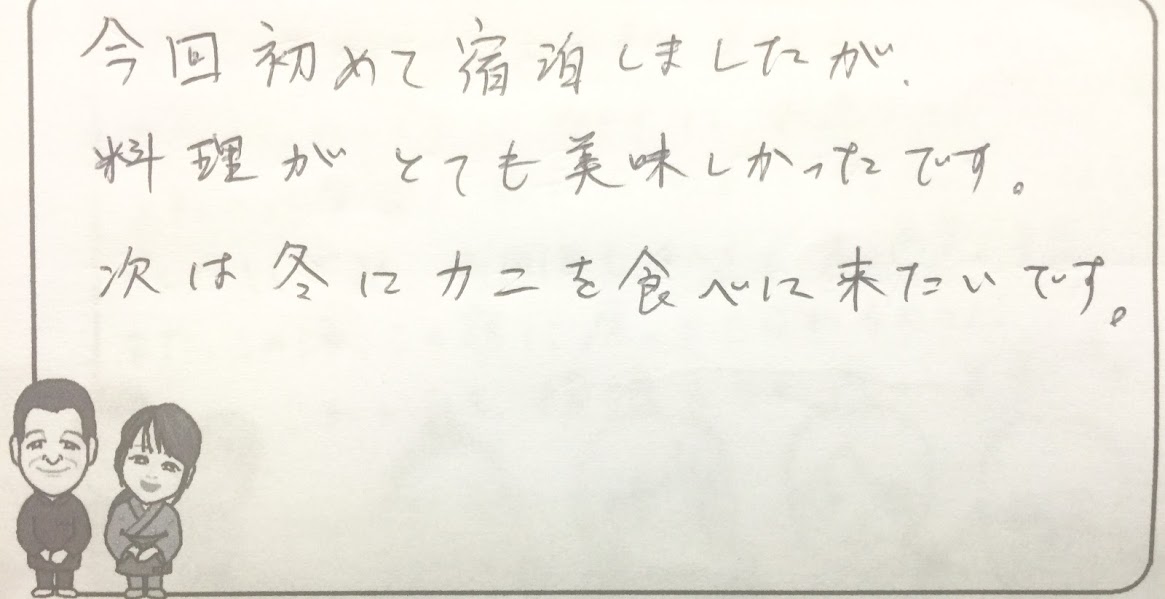 今回初めて宿泊しましたが、
料理がとても美味しかったです。
次は冬にカニを食べに来たいです。